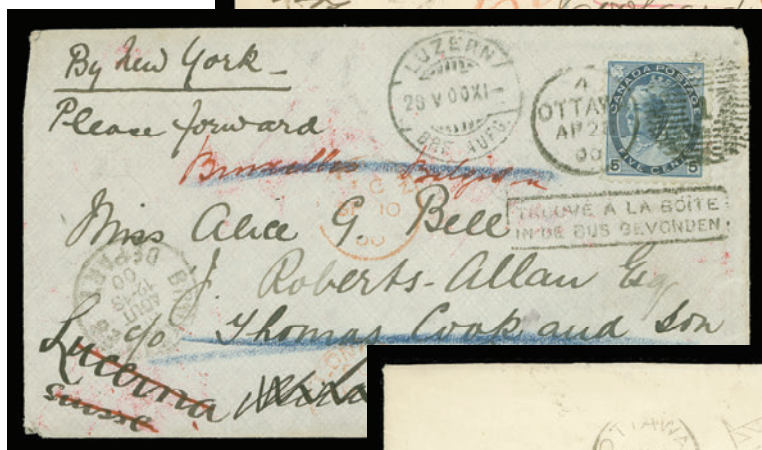 By New York
Please forward
LUZERN
BRF. AUFG.
4
OTTAWA
00
CANADA POSTAGE
FIVE CENTS
5 5
Bruxelles Belgium
10
00
TROUVÉ À LA BOÎTE
IN DE BUS GEVONDEN
Miss Alice G. Bell
J. Roberts-Allan Esq
c/o Thomas Cook and Son
DEPART
AOUT
00
Lucerna
Suisse
OTTAWA